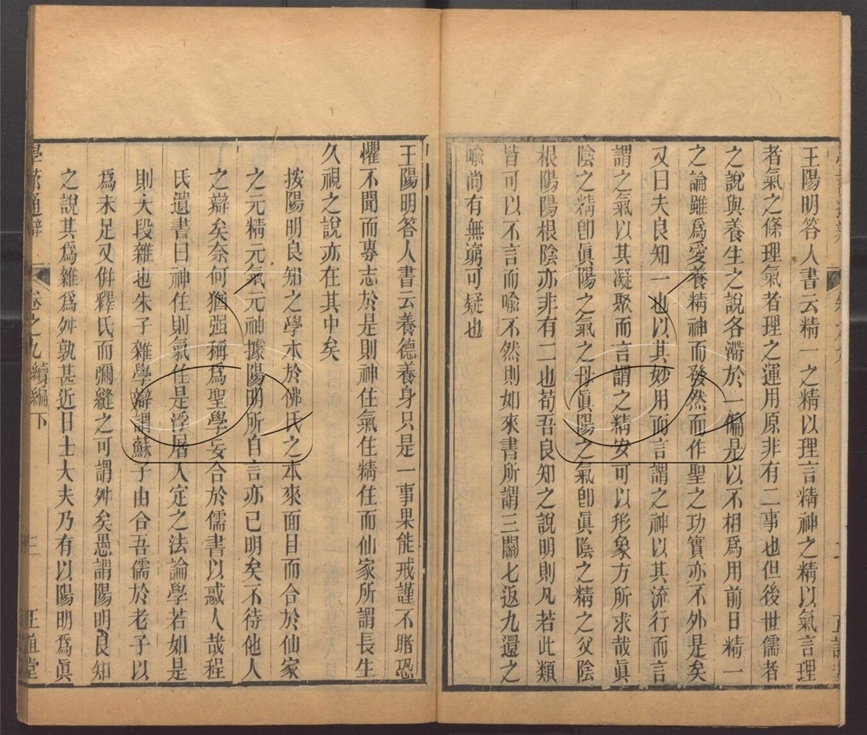 王陽明答人書云精一之精以理言精神之精以氣言理
者氣之條理氣者理之運用原非有二事也但後世儒者
之說與養生之說各滯於一偏是以不相爲用前日精一
之論雖爲愛養精神而發然而作聖之功實亦不外是矣
又曰夫良知一也以其妙用而言謂之神以其流行而言
謂之氣以其凝聚而言謂之精安可以形象方所求哉眞
陰之精卽眞陽之氣之母眞陽之氣卽眞陰之精之父陰
根陽陽根陰亦非有二也苟吾良知之說明則凡若此類
皆可以不言而喩不然則如來書所謂三關七返九還之
喩尚有無窮可疑也
王陽明答人書云養德養身只是一事果能戒謹不睹恐
懼不聞而專志於是則神住氣住精住而仙家所謂長生
久視之說亦在其中矣
按陽明良知之學本於佛氏之本來面目而合於仙家
之元精元氣元神據陽明所自言亦已明矣不待他人
之辯矣奈何猶强稱爲聖學妄合於儒書以惑人哉程
氏遺書曰神住則氣住是浮屠入定之法論學若如是
則大段雜也朱子雜學辯謂蘇子由合吾儒於老子以
爲未足又倂釋氏而彌縫之可謂舛矣愚謂陽明良知
之說其爲雜爲舛孰甚近日士大夫乃有以陽明爲眞
學蔀通辯 卷之九續編下 三 正誼堂